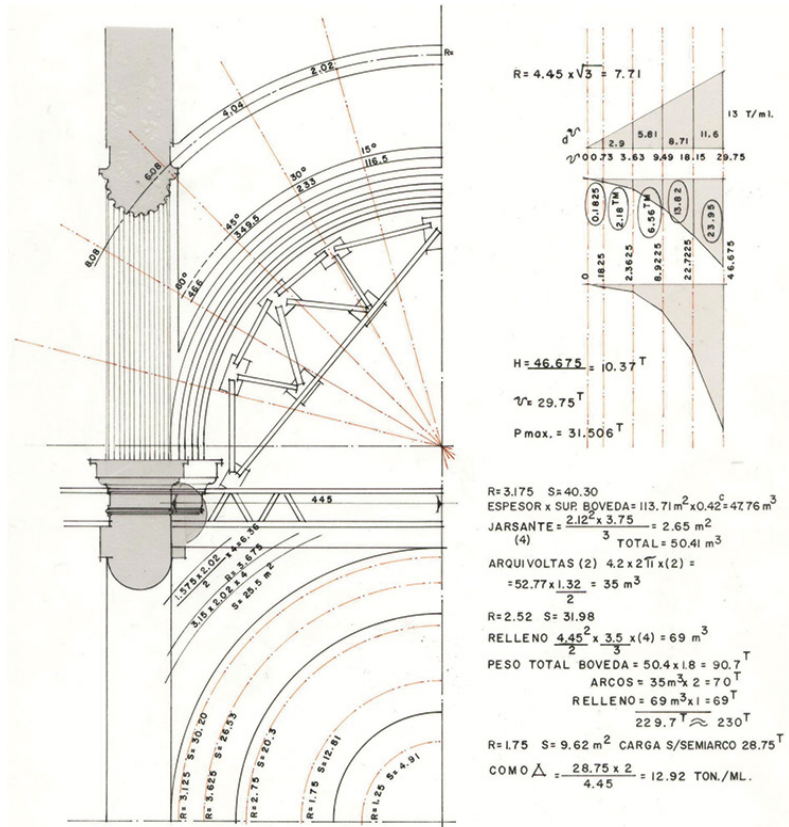 R=
2.02
4.04
6.08
8.08
15°
116.5
30°
233
45°
349.5
60°
466
445
1.575 x 2.02 x 4 = 6.36
2
R= 3.675
3.15 x 2.02 x 4
S= 25.5 m²
R= 3.125 S= 30.20
R= 3.625 S= 26.53
R= 2.75 S= 20.3
R= 1.75 S= 12.81
R= 1.25 S= 4.91
R= 4.45 x √3 = 7.71
13 T/ml.
2.9 5.81 8.71 11.6
0 0.73 3.63 9.49 18.15 29.75
0.1825 2.18 TM 6.56 TM 13.82 23.95
0 .1825 2.3625 8.9225 22.7225 46.675
H= 46.675 = 10.37 T
v= 29.75 T
P max. = 31.506 T
R= 3.175 S= 40.30
ESPESOR x SUP. BOVEDA = 113.71 m² x 0.42 c = 47.76 m³
JARSANTE = 2.12² x 3.75 = 2.65 m²
(4) 3 TOTAL = 50.41 m³
ARQUIVOLTAS (2) 4.2 x 2π x (2) =
= 52.77 x 1.32 = 35 m³
2
R= 2.52 S= 31.98
RELLENO 4.45² x 3.5 x (4) = 69 m³
2 3
PESO TOTAL BOVEDA = 50.4 x 1.8 = 90.7 T
ARCOS = 35 m³ x 2 = 70 T
RELLENO = 69 m³ x 1 = 69 T
229.7 T ≈ 230 T
R= 1.75 S= 9.62 m² CARGA S/SEMIARCO 28.75 T
COMO △ = 28.75 x 2 = 12.92 TON./ML.
4.45